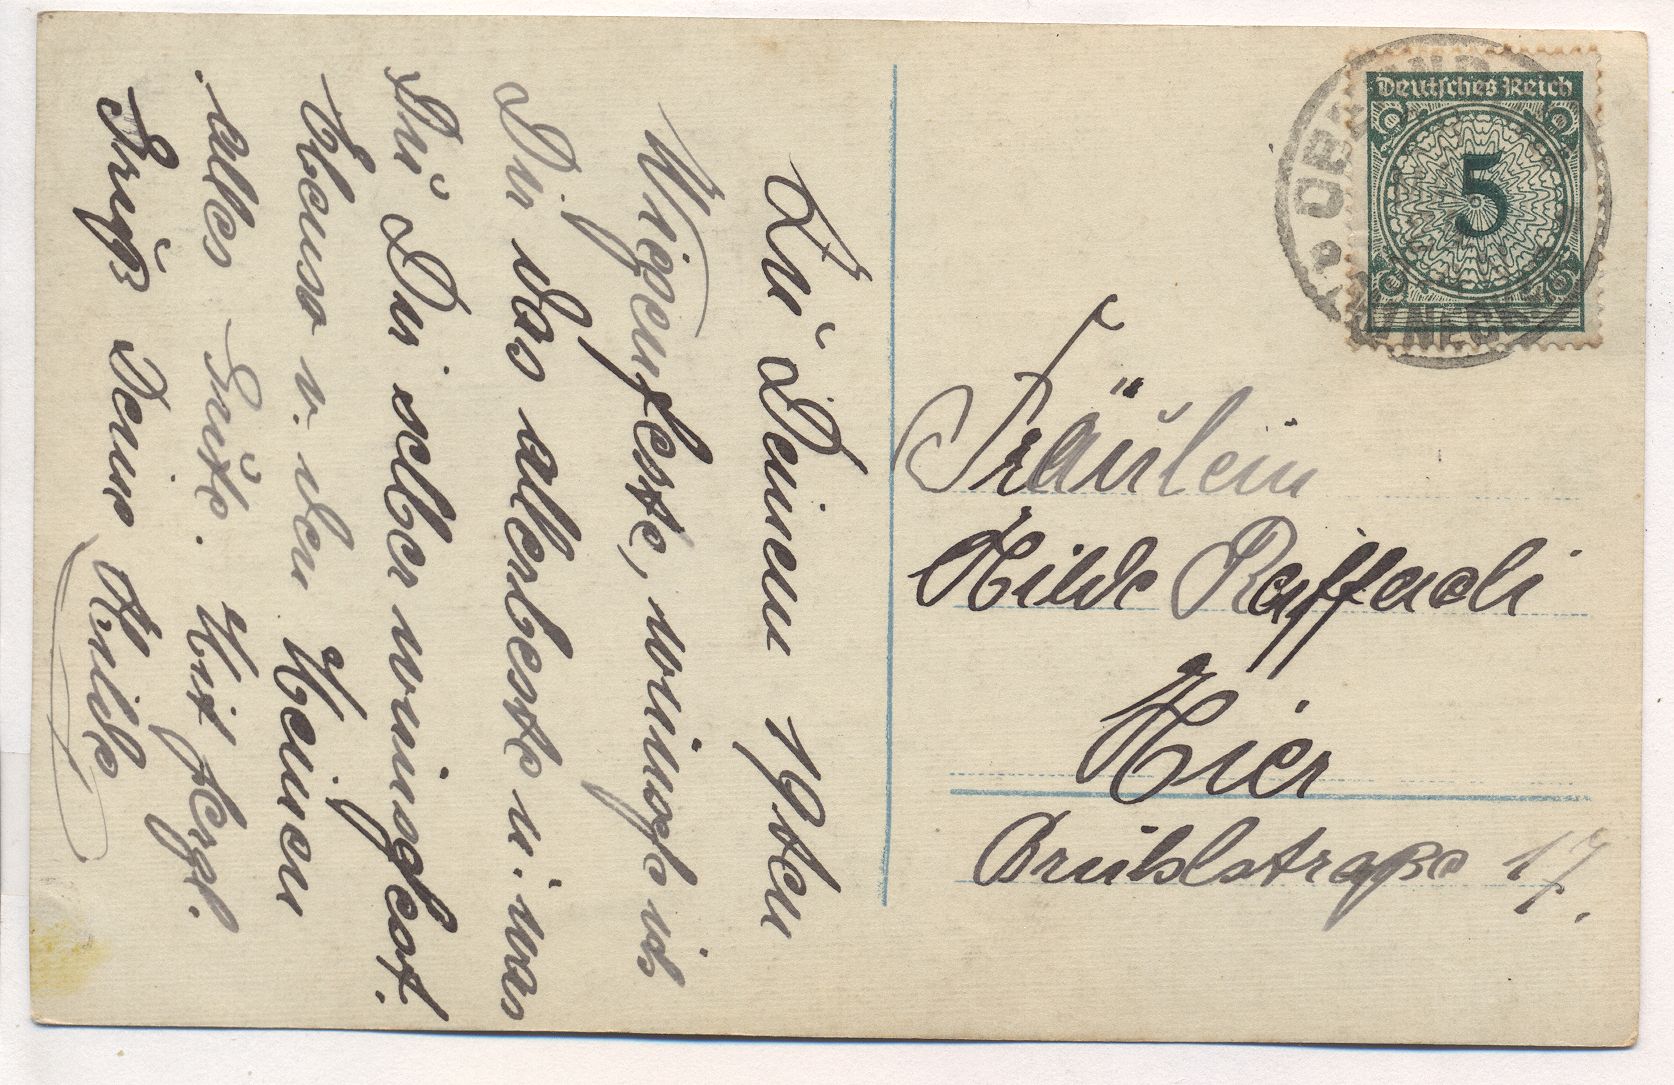 Zu Deinem 19ten
Wiegenfeste, wünsche ich
Dir das allerbeste u. was
Du Dir selber wünschest.
Ebenso v. den Meinen
alles Gute. Mit herzl.
Gruß Deine
Deutsches Reich
5
Fräulein
Hilde Raffaeli
Hier
Brühlstraße 17.